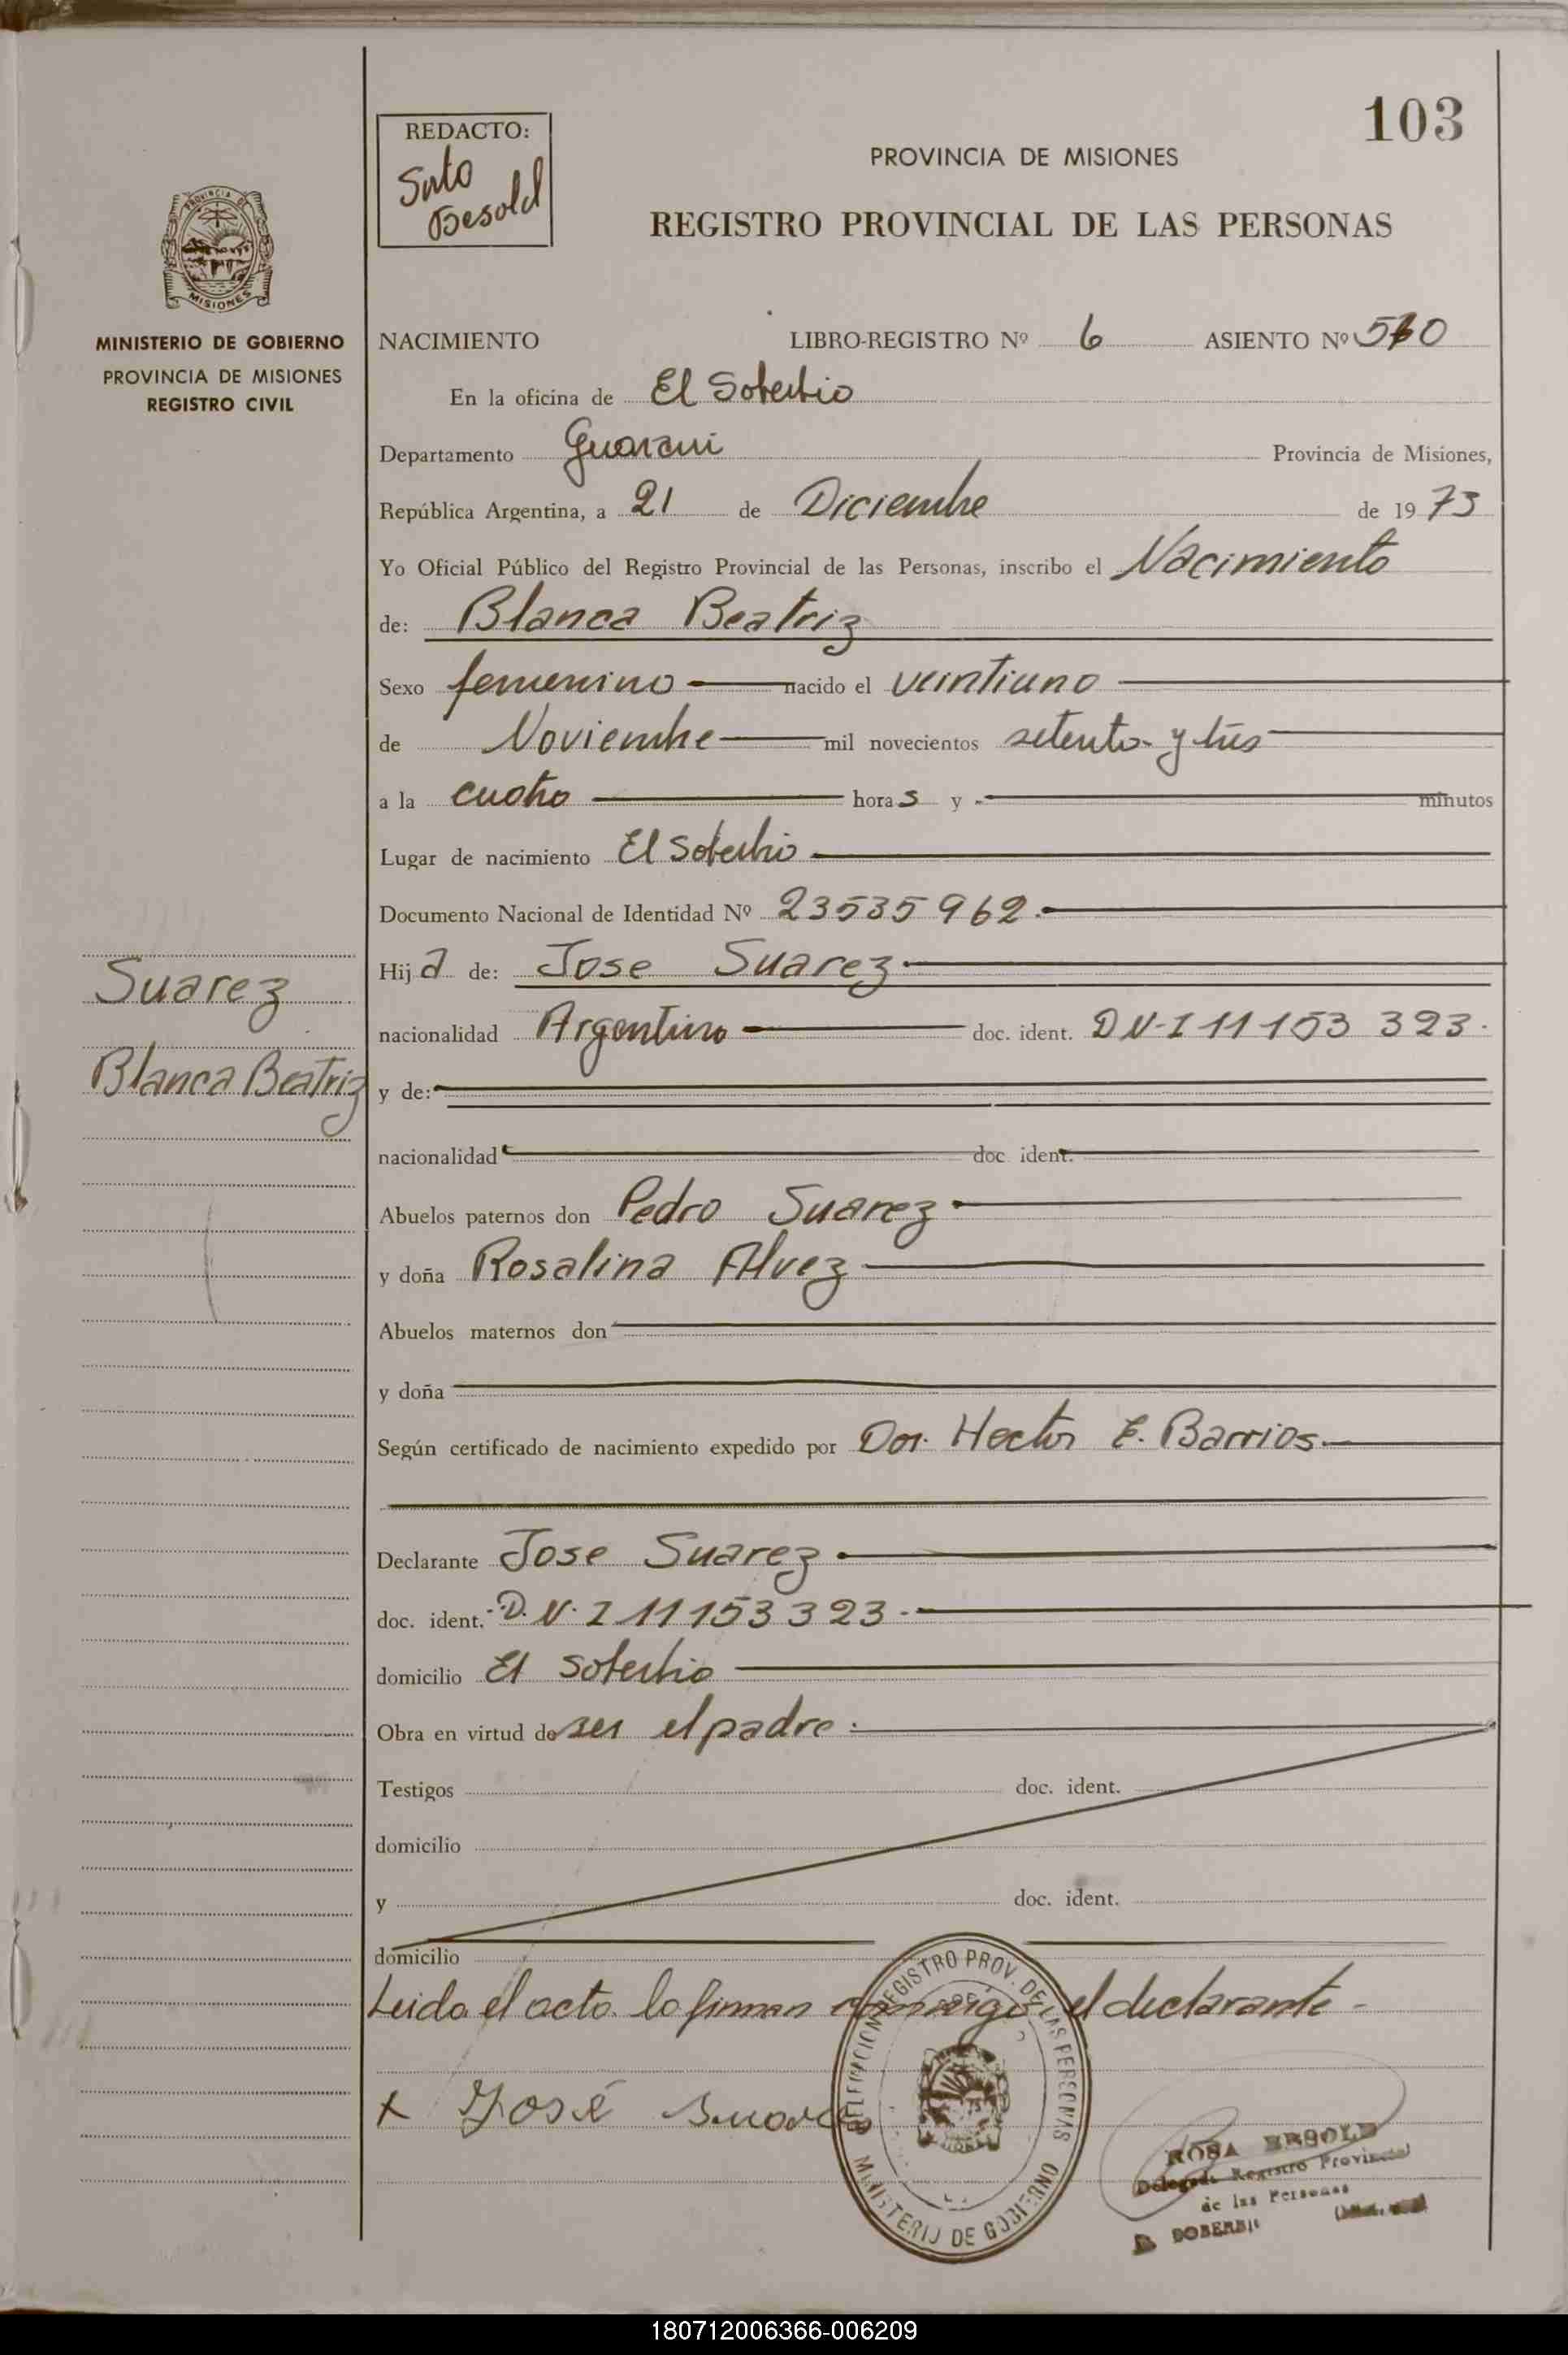 103
REDACTO:
Besold
PROVINCIA DE MISIONES
REGISTRO PROVINCIAL DE LAS PERSONAS
PROVINCIA DE
MISIONES
MINISTERIO DE GOBIERNO
PROVINCIA DE MISIONES
REGISTRO CIVIL
NACIMIENTO LIBRO-REGISTRO Nº 6 ASIENTO Nº
En la oficina de El Soberbio
Departamento Guarani Provincia de Misiones,
República Argentina, a 21 de Diciembre de 1973
Yo Oficial Público del Registro Provincial de las Personas, inscribo el Nacimiento
de: Blanca Beatriz
Sexo femenino nacido el veintiuno
de Noviembre mil novecientos setenta y tres
a la cuatro horas y minutos
Lugar de nacimiento El Soberbio
Documento Nacional de Identidad Nº 23535962.
Suarez
Blanca Beatriz
Hija de: Jose Suarez
nacionalidad Argentino doc. ident. DN-I 11 153 323.
y de:
nacionalidad doc. ident.
Abuelos paternos don Pedro Suarez
y doña Rosalina Alvez
Abuelos maternos don
y doña
Según certificado de nacimiento expedido por Dor. Hector E. Barrios.
Declarante Jose Suarez
doc. ident. D.N.I 11 153 323.
domicilio El Soberbio
Obra en virtud de ser el padre.
Testigos doc. ident.
domicilio
y doc. ident.
domicilio
Leida el acta lo firman conmigo, el declarante-
x José Suarez
DELEGACION REGISTRO PROV. DE LAS PERSONAS
MINISTERIO DE GOBIERNO
ROSA BESOLD
Delegada Registro Provincial
de las Personas
EL SOBERBIO
180712006366-006209